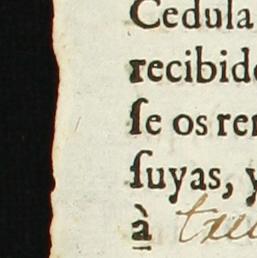 Cedula
recibid
ſe os re
ſuyas, y
à